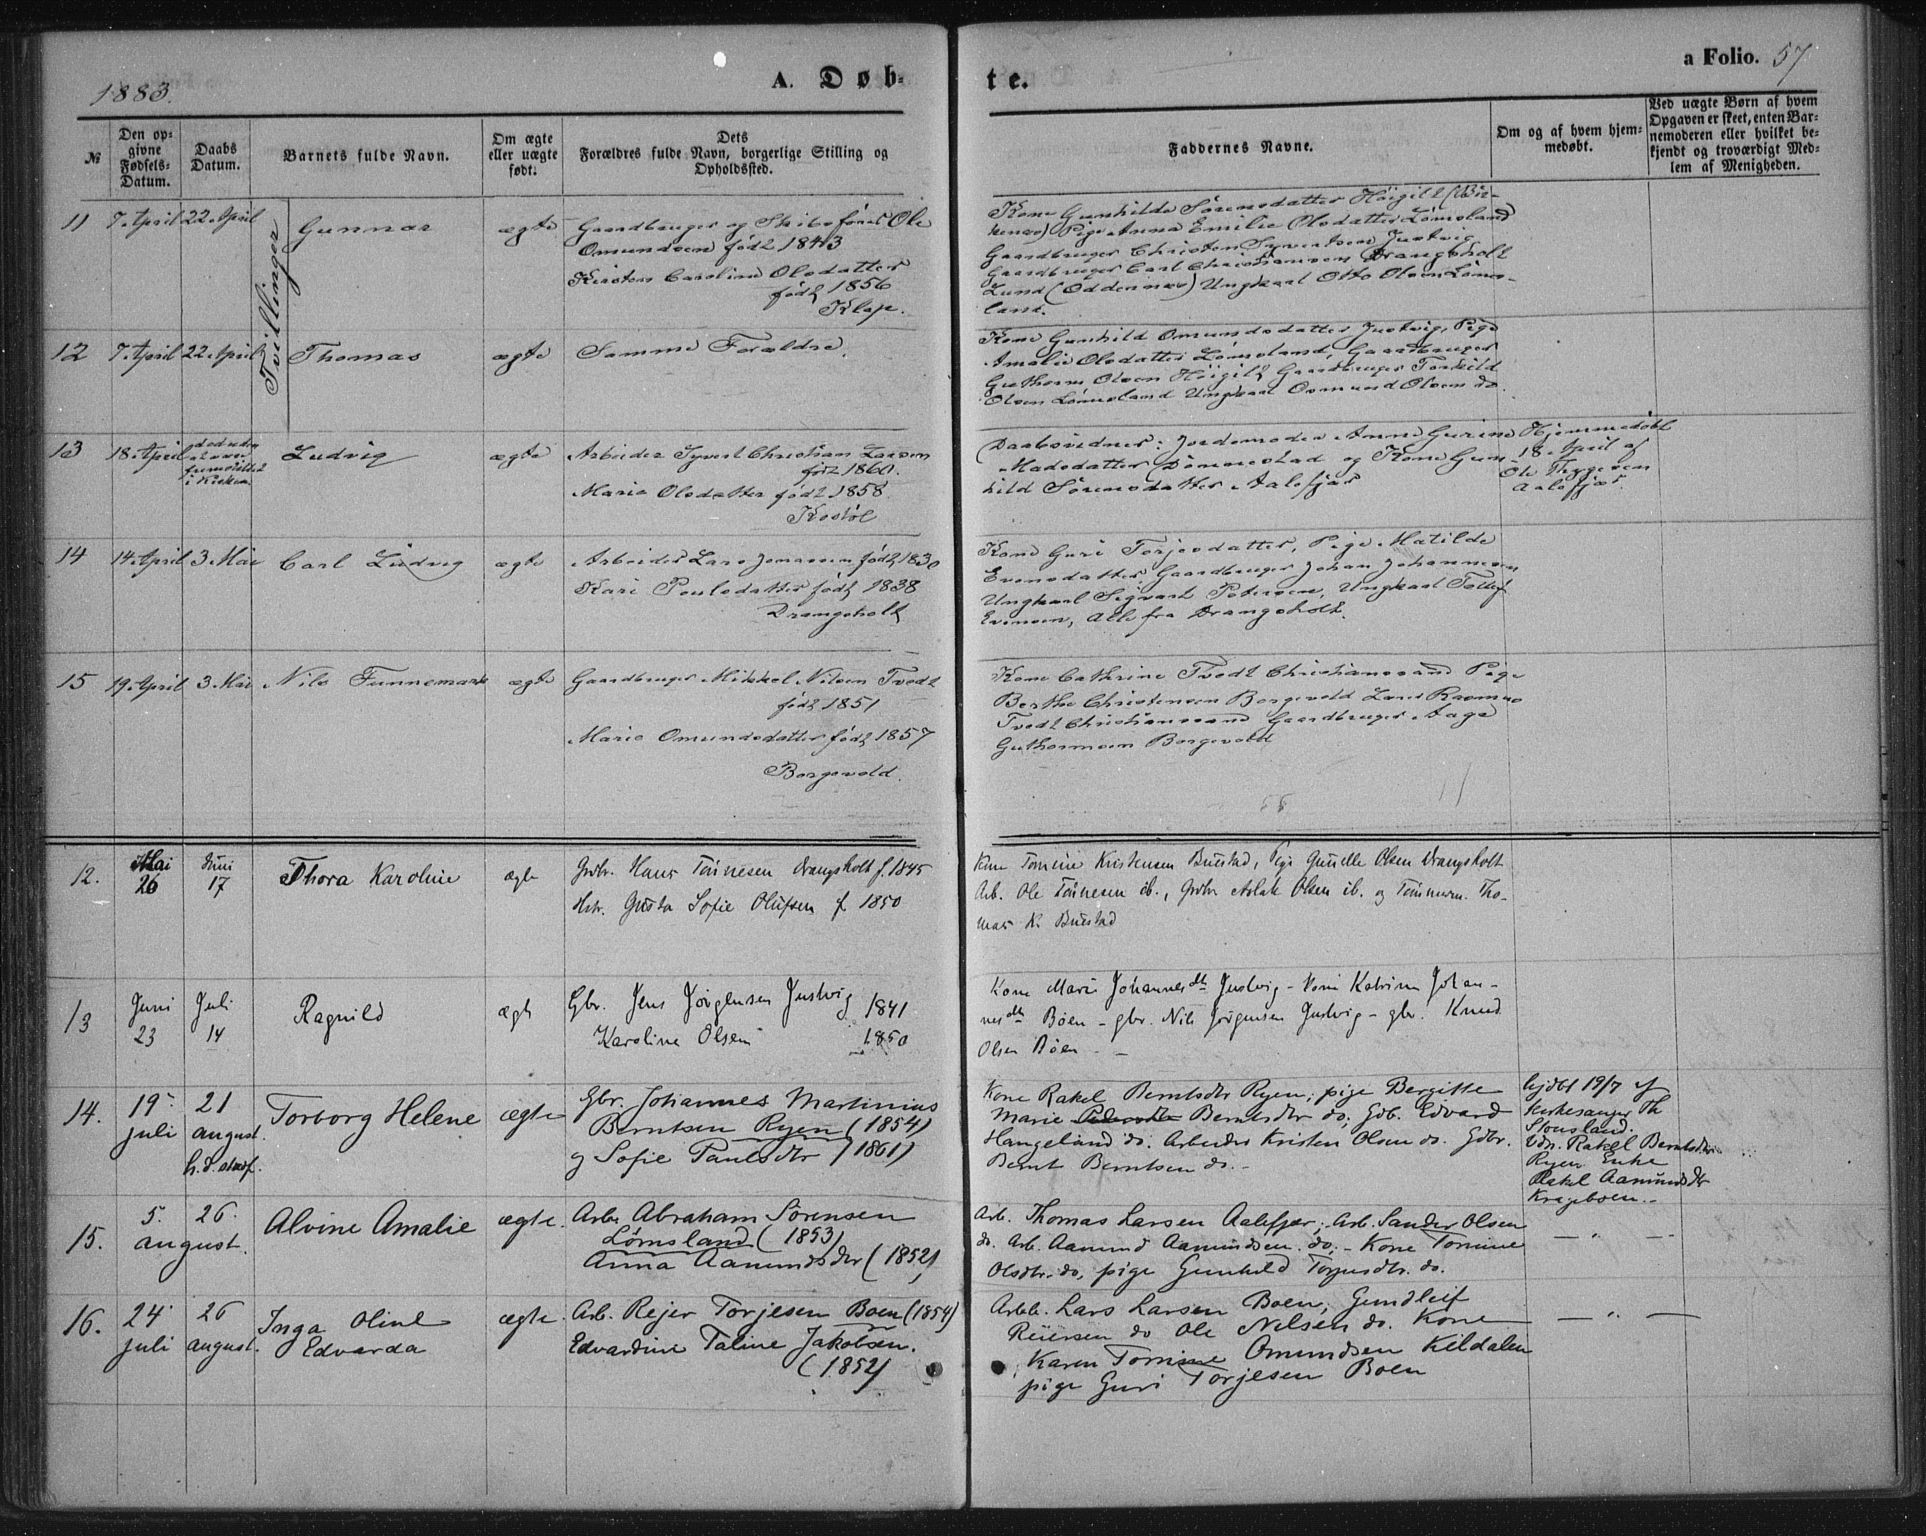 1883.
A. Døb-
te.
a Folio. 57
№
Den op-
givne
Fødsels-
Datum.
Daabs
Datum.
Barnets fulde Navn.
Om ægte
eller uægte
født.
Dets
Forældres fulde Navn, borgerlige Stilling og
Opholdssted.
Faddernes Navne.
Om og af hvem hjem-
medøbt.
Ved uægte Børn af hvem
Opgaven er skeet, enten Bar-
nemoderen eller hvilket be-
kjendt og troværdigt Med-
lem af Menigheden.
Tvillinger
11 7. April 22. April Gunnar ægte
Gaardbruger og Skibsfører Ole
Omundsen født 1843
Kirsten Caroline Olsdatter
født 1856
Klep.
Kone Gunhilde Sørensdatter Høigilt (Bir-
kenes) Pige Anna Emilie Olsdatter Lømsland
Gaardbruger Christen Syvertsen Justvig
Gaardbruger Carl Christiansen Drangsholt
Lund (Oddernes) Ungkarl Otto Olsen Løms-
land.
12 7. April 22. April Thomas ægte
Samme Forældre.
Kone Gunhild Omundsdatter Justvig, Pige
Amalie Olsdatter Lømsland, Gaardbruger
Guthorm Olsen Høigilt Gaardbruger Torkild
Olsen Lømsland Ungkarl Osmund Olsen do.
13 18. April
død uden
at være
fremstillet
i Kirken
Ludvig ægte
Arbeider Syvert Christian Larsen
født 1860.
Marie Olsdatter født 1858.
Kostøl
Daabsvidner: Jordemoder Anne Gurine
Madsdatter Dønnestad og Kone Gun-
hild Sørensdatter Aalefjær
Hjemmedøbt
18 April af
Ole Thygesen
Aalefjær.
14 14. April 3. Mai Carl Ludvig ægte
Arbeider Lars Jonassen født 1830
Kari Poulsdatter født 1838
Drangsholt
Kone Guri Torjersdatter, Pige Matilde
Evensdatter, Gaardbruger Johan Johannesen
Ungkarl Sigvart Petersen, Ungkarl Tollef
Evensen, Alle fra Drangsholt.
15 19. April 3. Mai Nils Funnemark ægte
Gaardbruger Mikkel Nilsen Tvedt
født 1851
Marie Omundsdatter født 1857
Borgevold.
Kone Cathrine Tvedt Christianssand Pige
Berthe Christensen Borgevold Lars Rasmus
Tvedt Christianssand Gaardbruger Aage
Guthormsen Borgevold
12. Mai
26 Juni
17 Thora Karoline ægte
Grdbr. Hans Tönnesen Drangsholt f. 1845
Hstr. Gusta Sofie Olufsen f 1850
Kone Tomine Kristensen Buestad, Pige Gunelle Olsen Drangsholt
Arb. Ole Tönnesen ib., Grdbr Aslak Olsen ib. og Tömmerm. Tho-
mas K. Buestad
13 Juni
23 Juli
14 Ragnild ægte
Gbr. Jens Jørgensen Justvig 1841
Karoline Olsen 1850
Kone Marie Johannesdtr Justvig - Kone Katrine Johan-
nesdtr Böen - gbr. Nils Jørgensen Justvig - gbr. Knud
Olsen Böen -
14. 19.
juli 21
august.
Torborg Helene ægte
Gbr. Johannes Martinius
Berntsen Ryen (1854)
og Sofie Paulsdtr (1861)
Kone Rakel Berntsdtr Ryen, pige Bergitte
Marie Berntsdtr do, Gdb. Edvard
Haugeland do. Arbeider Kristen Olsen do. Gdbr.
Bernt Berntsen do. -
hjdbt 19/7 af
kirkesanger Th
Stousland.
Vdn. Rakel Berntsdtr
Ryen Enke
Rakel Aamundsdtr
Krageboen.
15. 5. 26.
august.
Alvine Amalie ægte.
Arb. Abraham Sørensen
Lømsland (1853)
Anna Aanundsdtr (1852)
Arb. Thomas Larsen Aalefjær, Arb. Sander Olsen
do. Arb. Aamund Aamundsen do, - Kone Tomine
Olsdtr. do, pige Gunhild Torjusdtr. do.
— " —
16. 24.
juli 26
august. Inga Oline
Edvarda ægte.
Arb. Rejer Torjesen Boen (1854)
Edvardine Taline Jakobsen.
(1852)
Arbb. Lars Larsen Boen, Gundleif
Reiersen do Ole Nilsen do. Kone
Karen Tomine Omundsen Kildalen
pige Guri Torjesen Boen
— " —